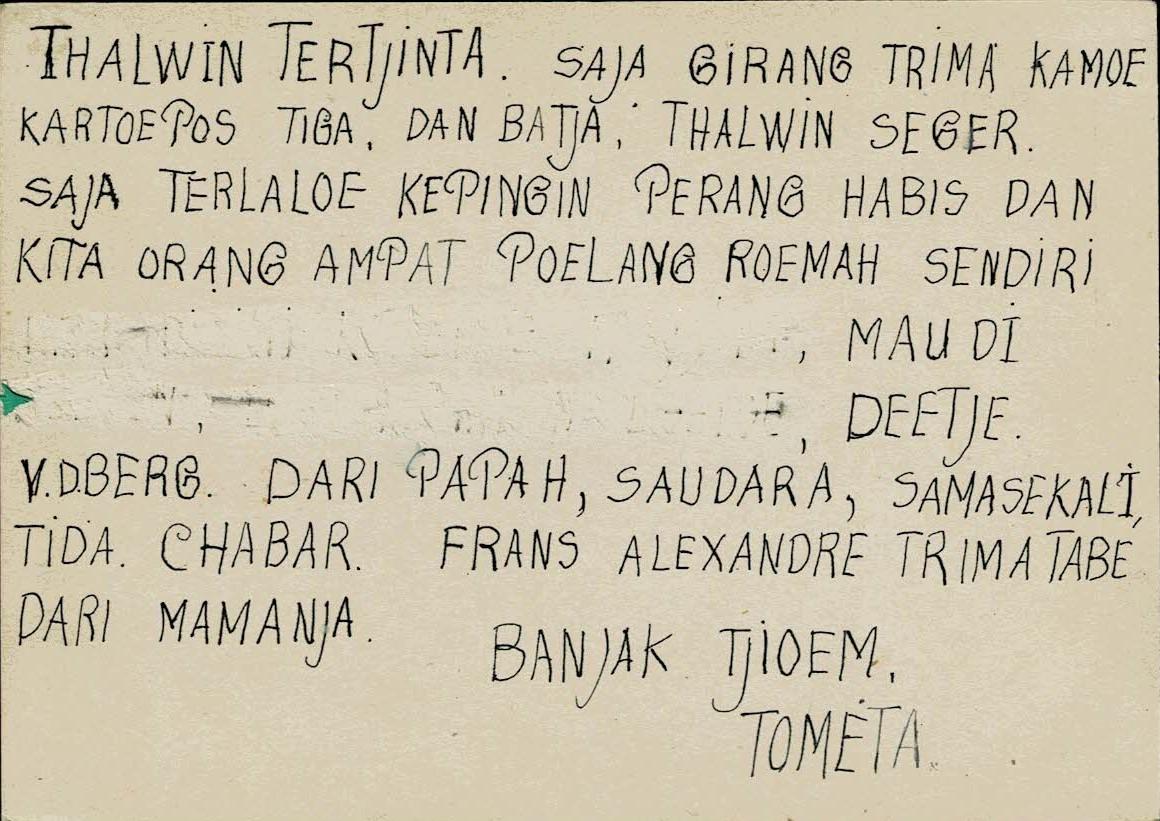 THALWIN TERTJINTA. SAJA GIRANG TRIMA KAMOE
KARTOEPOS TIGA, DAN BATJA, THALWIN SEGER.
SAJA TERLALOE KEPINGIN PERANG HABIS DAN
KITA ORANG AMPAT POELANG ROEMAH SENDIRI
, MAU DI
, DEETJE.
V.D.BERG. DARI PAPAH, SAUDARA, SAMASEKALI,
TIDA. CHABAR. FRANS ALEXANDRE TRIMA TABE
DARI MAMANJA.
BANJAK TJIOEM,
TOMETA.